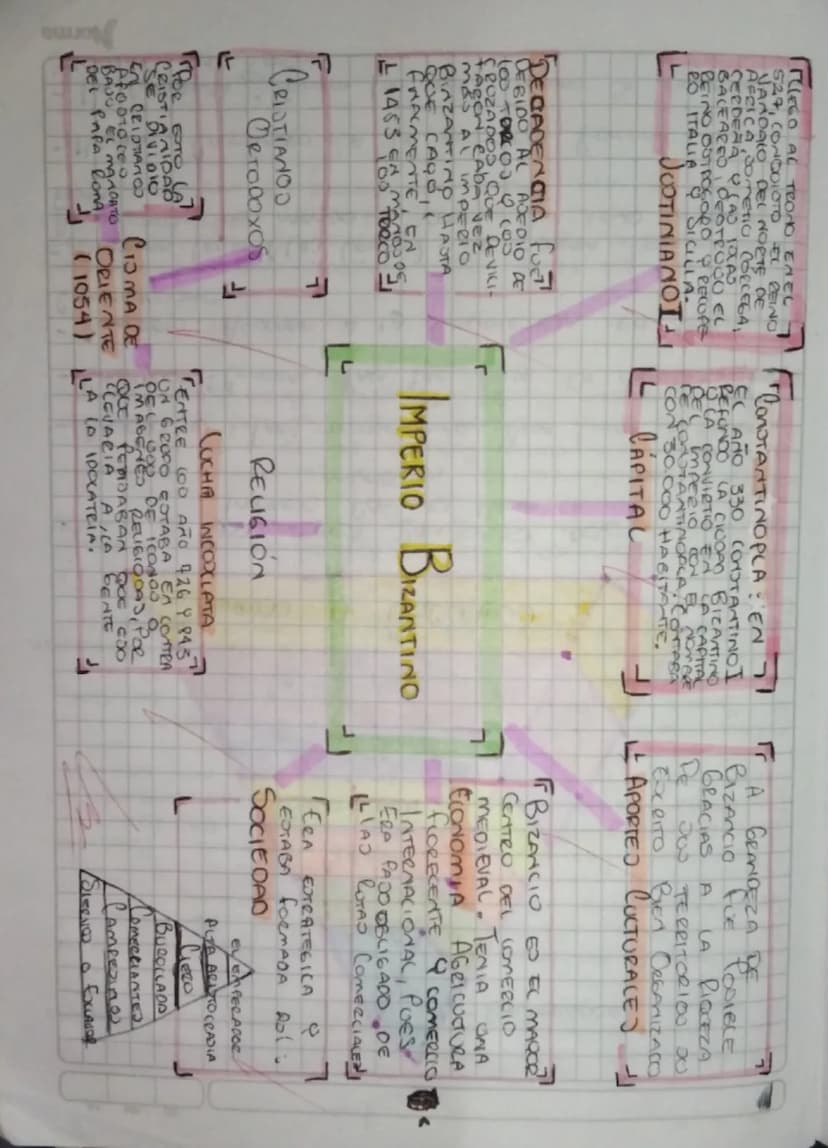 Norma
IMPERIO BIZANTINO
JUSTINIANO I
LLEGO AL TRONO EN EL
527, CONQUISTO EL REINO
VANDALO DEL NORTE DE
AFRICA, SOMETIO CORCEGA,
CERDEÑA Y LAS ISLAS
BALEARES, DESTRUYO EL
REINO OSTROGODO Y RECUPE
RO ITALIA Y SICILIA.
CONSTANTINOPLA: EN
EL AÑO 330 CONSTANTINO I
REFUNDO LA CIUDAD BIZANTINO
Y LA CONVIRTIO EN LA CAPITAL
DEL IMPERIO CON EL NOMBRE
DE CONSTANTINOPLA. CONTABA
CON 30.000 HABITANTE.
CÁPITAL
A GRANDEZA DE
BIZANCIO FUE POSIBLE
GRACIAS A LA RIQUEZA
DE SUS TERRITORIOS SU
EXCRITO BIEN ORGANIZACO
APORTES CULTURALES
DECADENCIA FUE
DEBIDO AL ASEDIO DE
LOS TURCOS Y LOS
CRUZADOS QUE DEVILI-
TARON CADA VEZ
MAS AL IMPERIO
BINZANTINO HASTA
QUE CAYO,
FINALMENTE, EN
1453 EN MANOS DE
LOS TURCO
BIZANCIO ES EL MAYOR
CENTRO DEL COMERCIO
MEDIEVAL. TENIA UNA
ECONOMIA AGRICULTURA
FLORECENTE Y COMERCIO
INTERNACIONAL, PUES
ERA PASO OBLIGADO DE
LAS RUTAS COMERCIALES
CRISTIANOS
ORTODOXOS
RELIGIÓN
SOCIEDAD
ERA ESTRATEGICA Y
ESTABA FORMADA POR:
EL EMPERADOR
ALTA ARISTOCRACIA
CLERO
BURGUESIA
COMERCIANTES
CAMPESINOS
SIERVOS O ESCLAVOS
POR ESTO LA
CRISTIANIDAD
SE DIVIDIO
EN CRISTIANOS
BAJO EL MANDATO
DEL PAPA ROMA
CISMA DE
ORIENTE
(1054)
LUCHA INCOCLATA
ENTRE LOS AÑO 726 Y 843
UN GRUPO ESTABA EN CONTRA
DEL USO DE ICONOS O
IMAGENES RELIGIOSAS, POR
QUE PENSABAN QUE ESO
LLEVARIA A LA GENTE
A LA IDOLATRIA.